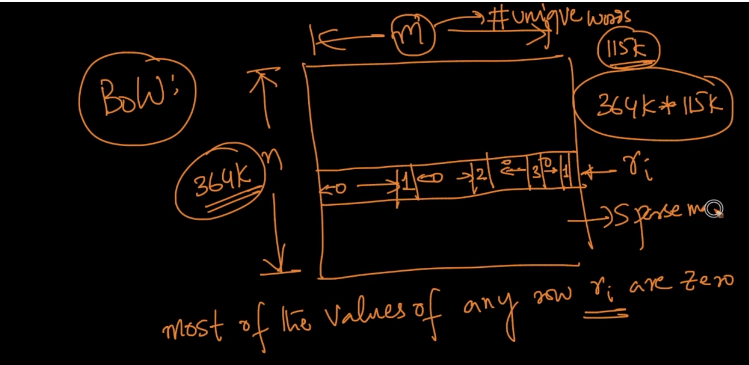 m → #unique words
115K
BoW:
364K * 115K
364K n
←0→ 1 ←0→ 2 ←0 3 0→ 1 ← ri
→ Sparse ma
most of the values of any row ri are zero